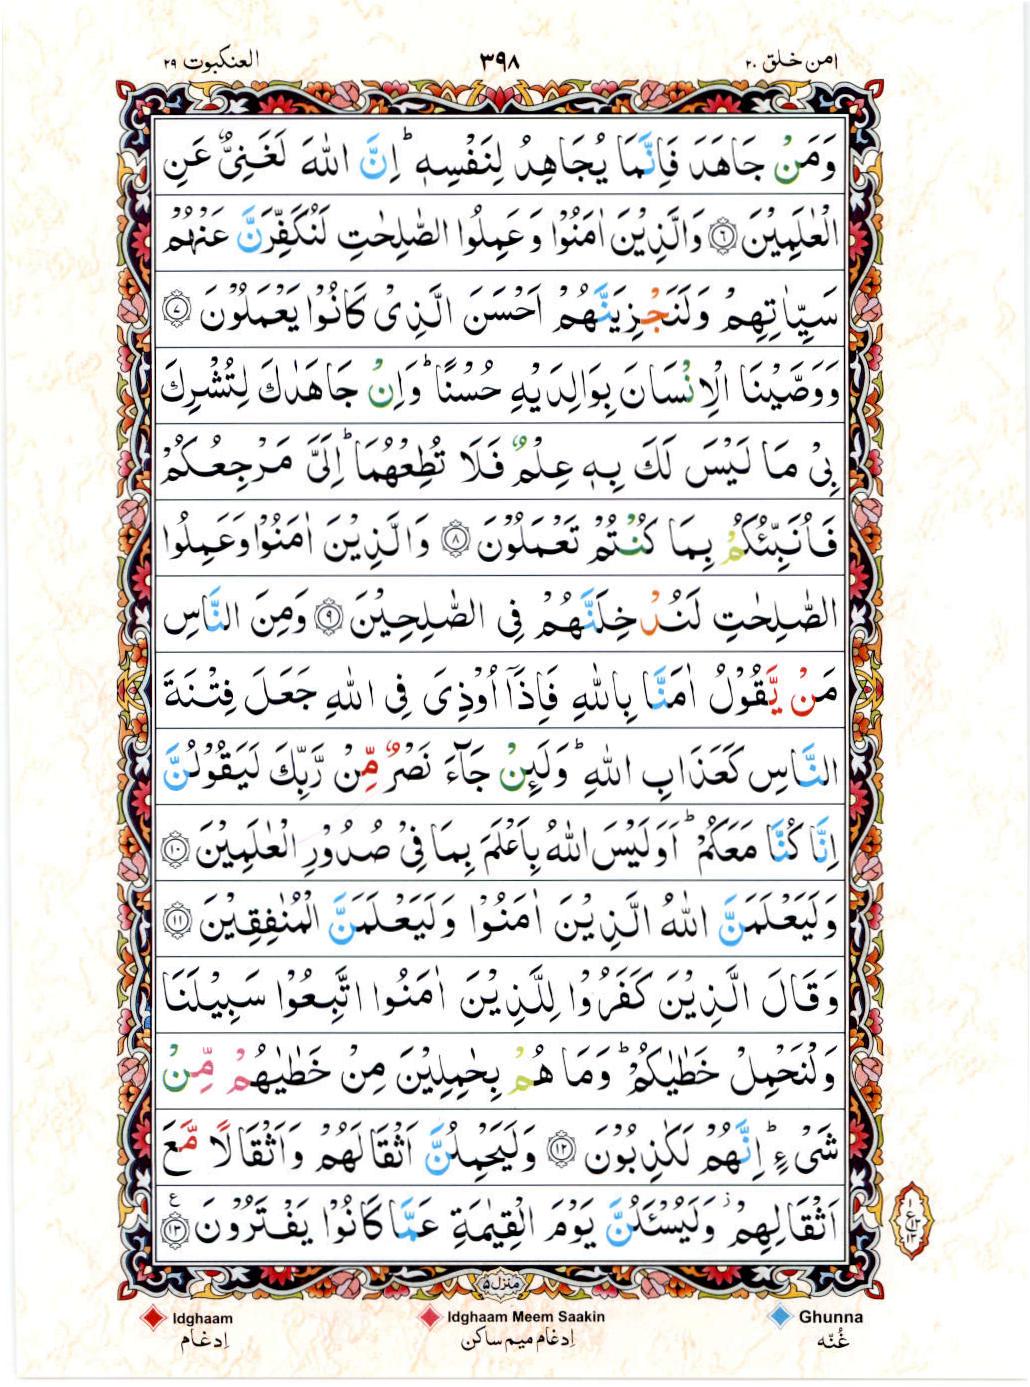 امن خلق ۲۰ ۳۹۸ العنکبوت ۲۹
وَمَنْ جَاهَدَ فَاِنَّمَا يُجَاهِدُ لِنَفْسِهٖ ؕ اِنَّ اللّٰهَ لَغَنِىٌّ عَنِ
الْعٰلَمِيْنَ ﴿۶﴾ وَالَّذِيْنَ اٰمَنُوْا وَعَمِلُوا الصّٰلِحٰتِ لَنُكَفِّرَنَّ عَنْهُمْ
سَيِّاٰتِهِمْ وَلَنَجْزِيَنَّهُمْ اَحْسَنَ الَّذِىْ كَانُوْا يَعْمَلُوْنَ ﴿۷﴾
وَوَصَّيْنَا الْاِنْسَانَ بِوَالِدَيْهِ حُسْنًا ؕ وَاِنْ جَاهَدٰكَ لِتُشْرِكَ
بِىْ مَا لَيْسَ لَكَ بِهٖ عِلْمٌ فَلَا تُطِعْهُمَا ؕ اِلَىَّ مَرْجِعُكُمْ
فَاُنَبِّئُكُمْ بِمَا كُنْتُمْ تَعْمَلُوْنَ ﴿۸﴾ وَالَّذِيْنَ اٰمَنُوْا وَعَمِلُوا
الصّٰلِحٰتِ لَنُدْخِلَنَّهُمْ فِى الصّٰلِحِيْنَ ﴿۹﴾ وَمِنَ النَّاسِ
مَنْ يَّقُوْلُ اٰمَنَّا بِاللّٰهِ فَاِذَاۤ اُوْذِىَ فِى اللّٰهِ جَعَلَ فِتْنَةَ
النَّاسِ كَعَذَابِ اللّٰهِ ؕ وَلَئِنْ جَآءَ نَصْرٌ مِّنْ رَّبِّكَ لَيَقُوْلُنَّ
اِنَّا كُنَّا مَعَكُمْ ؕ اَوَلَيْسَ اللّٰهُ بِاَعْلَمَ بِمَا فِىْ صُدُوْرِ الْعٰلَمِيْنَ ﴿۱۰﴾
وَلَيَعْلَمَنَّ اللّٰهُ الَّذِيْنَ اٰمَنُوْا وَلَيَعْلَمَنَّ الْمُنٰفِقِيْنَ ﴿۱۱﴾
وَقَالَ الَّذِيْنَ كَفَرُوْا لِلَّذِيْنَ اٰمَنُوا اتَّبِعُوْا سَبِيْلَنَا
وَلْنَحْمِلْ خَطٰيٰكُمْ ؕ وَمَا هُمْ بِحٰمِلِيْنَ مِنْ خَطٰيٰهُمْ مِّنْ
شَىْءٍ ؕ اِنَّهُمْ لَكٰذِبُوْنَ ﴿۱۲﴾ وَلَيَحْمِلُنَّ اَثْقَالَهُمْ وَاَثْقَالًا مَّعَ
اَثْقَالِهِمْ ز وَلَيُسْـَٔلُنَّ يَوْمَ الْقِيٰمَةِ عَمَّا كَانُوْا يَفْتَرُوْنَ ﴿۱۳﴾ ع
۱ ع ۱۳ ۱۳
منزل ۵
Idghaam Idghaam Meem Saakin Ghunna
اِدغام اِدغام میم ساکن غُنّه